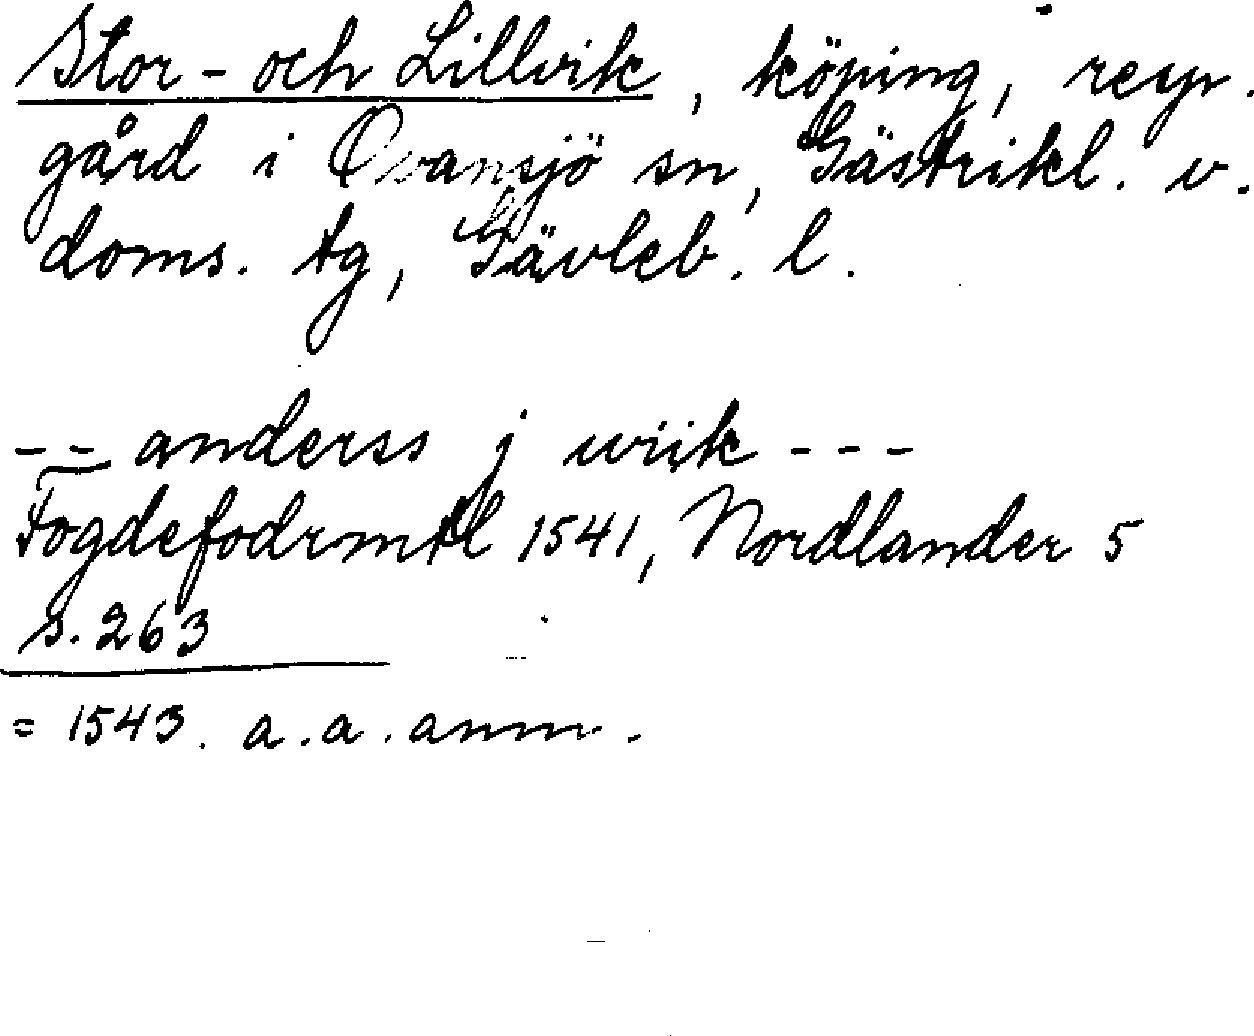 Stor- och Lillvik, köping, resp.
gård i Ovansjö sn, Gästrikl. v.
doms. tg, Gävleb. l.
-- anderss j wiik ---
Fogdefodrmtl 1541, Nordlander 5
s. 263
= 1543. a.a. anm.